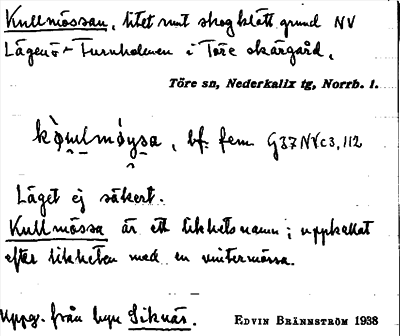 Kullmössan, litet runt skogklätt grund NV
Lägenö-Furuholmen i Töre skärgård.
Töre sn, Nederkalix tg, Norrb. l.
bf. fem G37NVc3,112
Läget ej säkert.
Kullmössa är ett likhetsnamn; uppkallat
efter likheten med en vintermössa.
Uppg. från byn Siknäs. EDVIN BRÄNNSTRÖM 1938